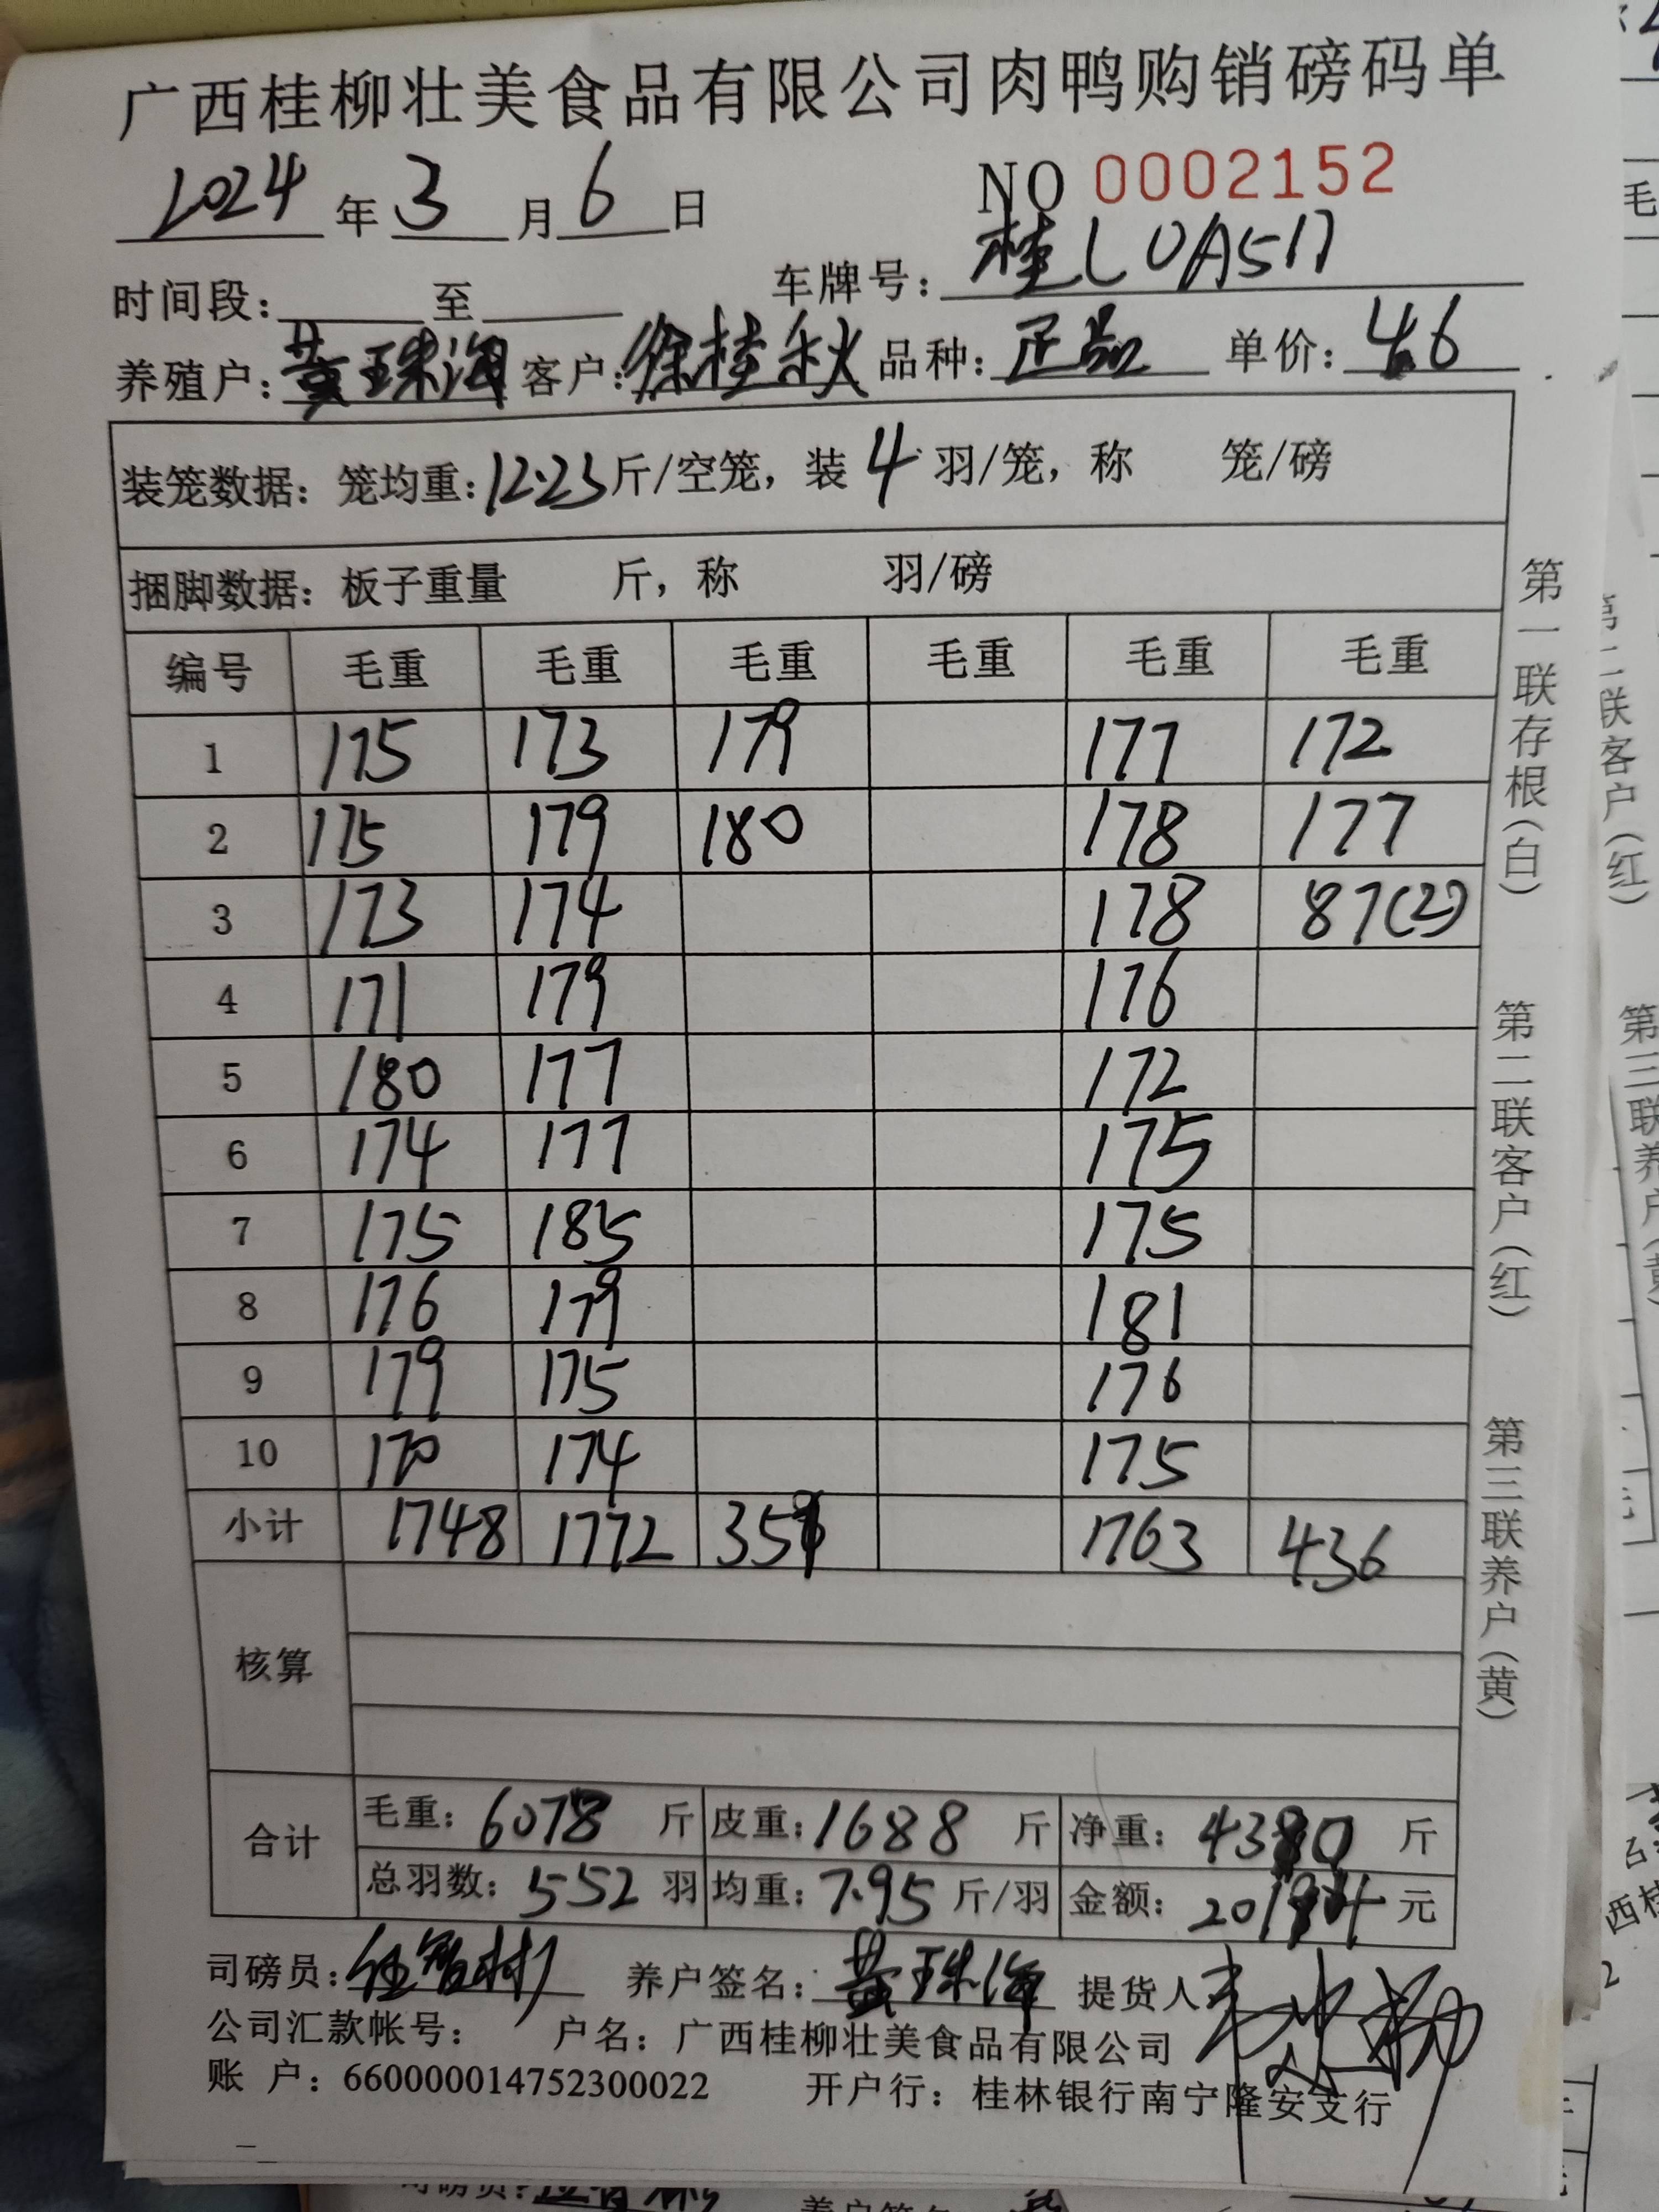 广西桂柳壮美食品有限公司肉鸭购销磅码单
2024 年 3 月 6 日 NO 0002152
时间段: 至 车牌号: 桂L0A517
养殖户: 黄珠海 客户: 徐桂秋 品种: 正品 单价: 4.6
装笼数据: 笼均重: 12.23 斤/空笼, 装 4 羽/笼, 称 笼/磅
捆脚数据: 板子重量 斤, 称 羽/磅
编号 毛重 毛重 毛重 毛重 毛重 毛重
1 175 173 179 177 172
2 175 179 180 178 177
3 173 174 178 87(2)
4 171 179 176
5 180 177 172
6 174 177 175
7 175 185 175
8 176 179 181
9 179 175 176
10 170 174 175
小计 1748 1772 359 1763 436
核算
合计 毛重: 6078 斤 皮重: 1688 斤 净重: 4390 斤
总羽数: 552 羽 均重: 7.95 斤/羽 金额: 20194 元
司磅员: 养户签名: 黄珠海 提货人
公司汇款帐号: 户名: 广西桂柳壮美食品有限公司
账 户: 660000014752300022 开户行: 桂林银行南宁隆安支行
第一联存根(白) 第二联客户(红) 第三联养户(黄)